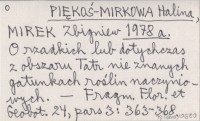 O PIĘKOŚ-MIRKOWA Halina,
MIREK Zbigniew 1978 a.
O rzadkich lub dotychczas
z obszaru Tatr nie znanych
gatunkach roślin naczynio-
wych. — Fragm. Flor. et
Geobot. 24, pars 3: 363-368